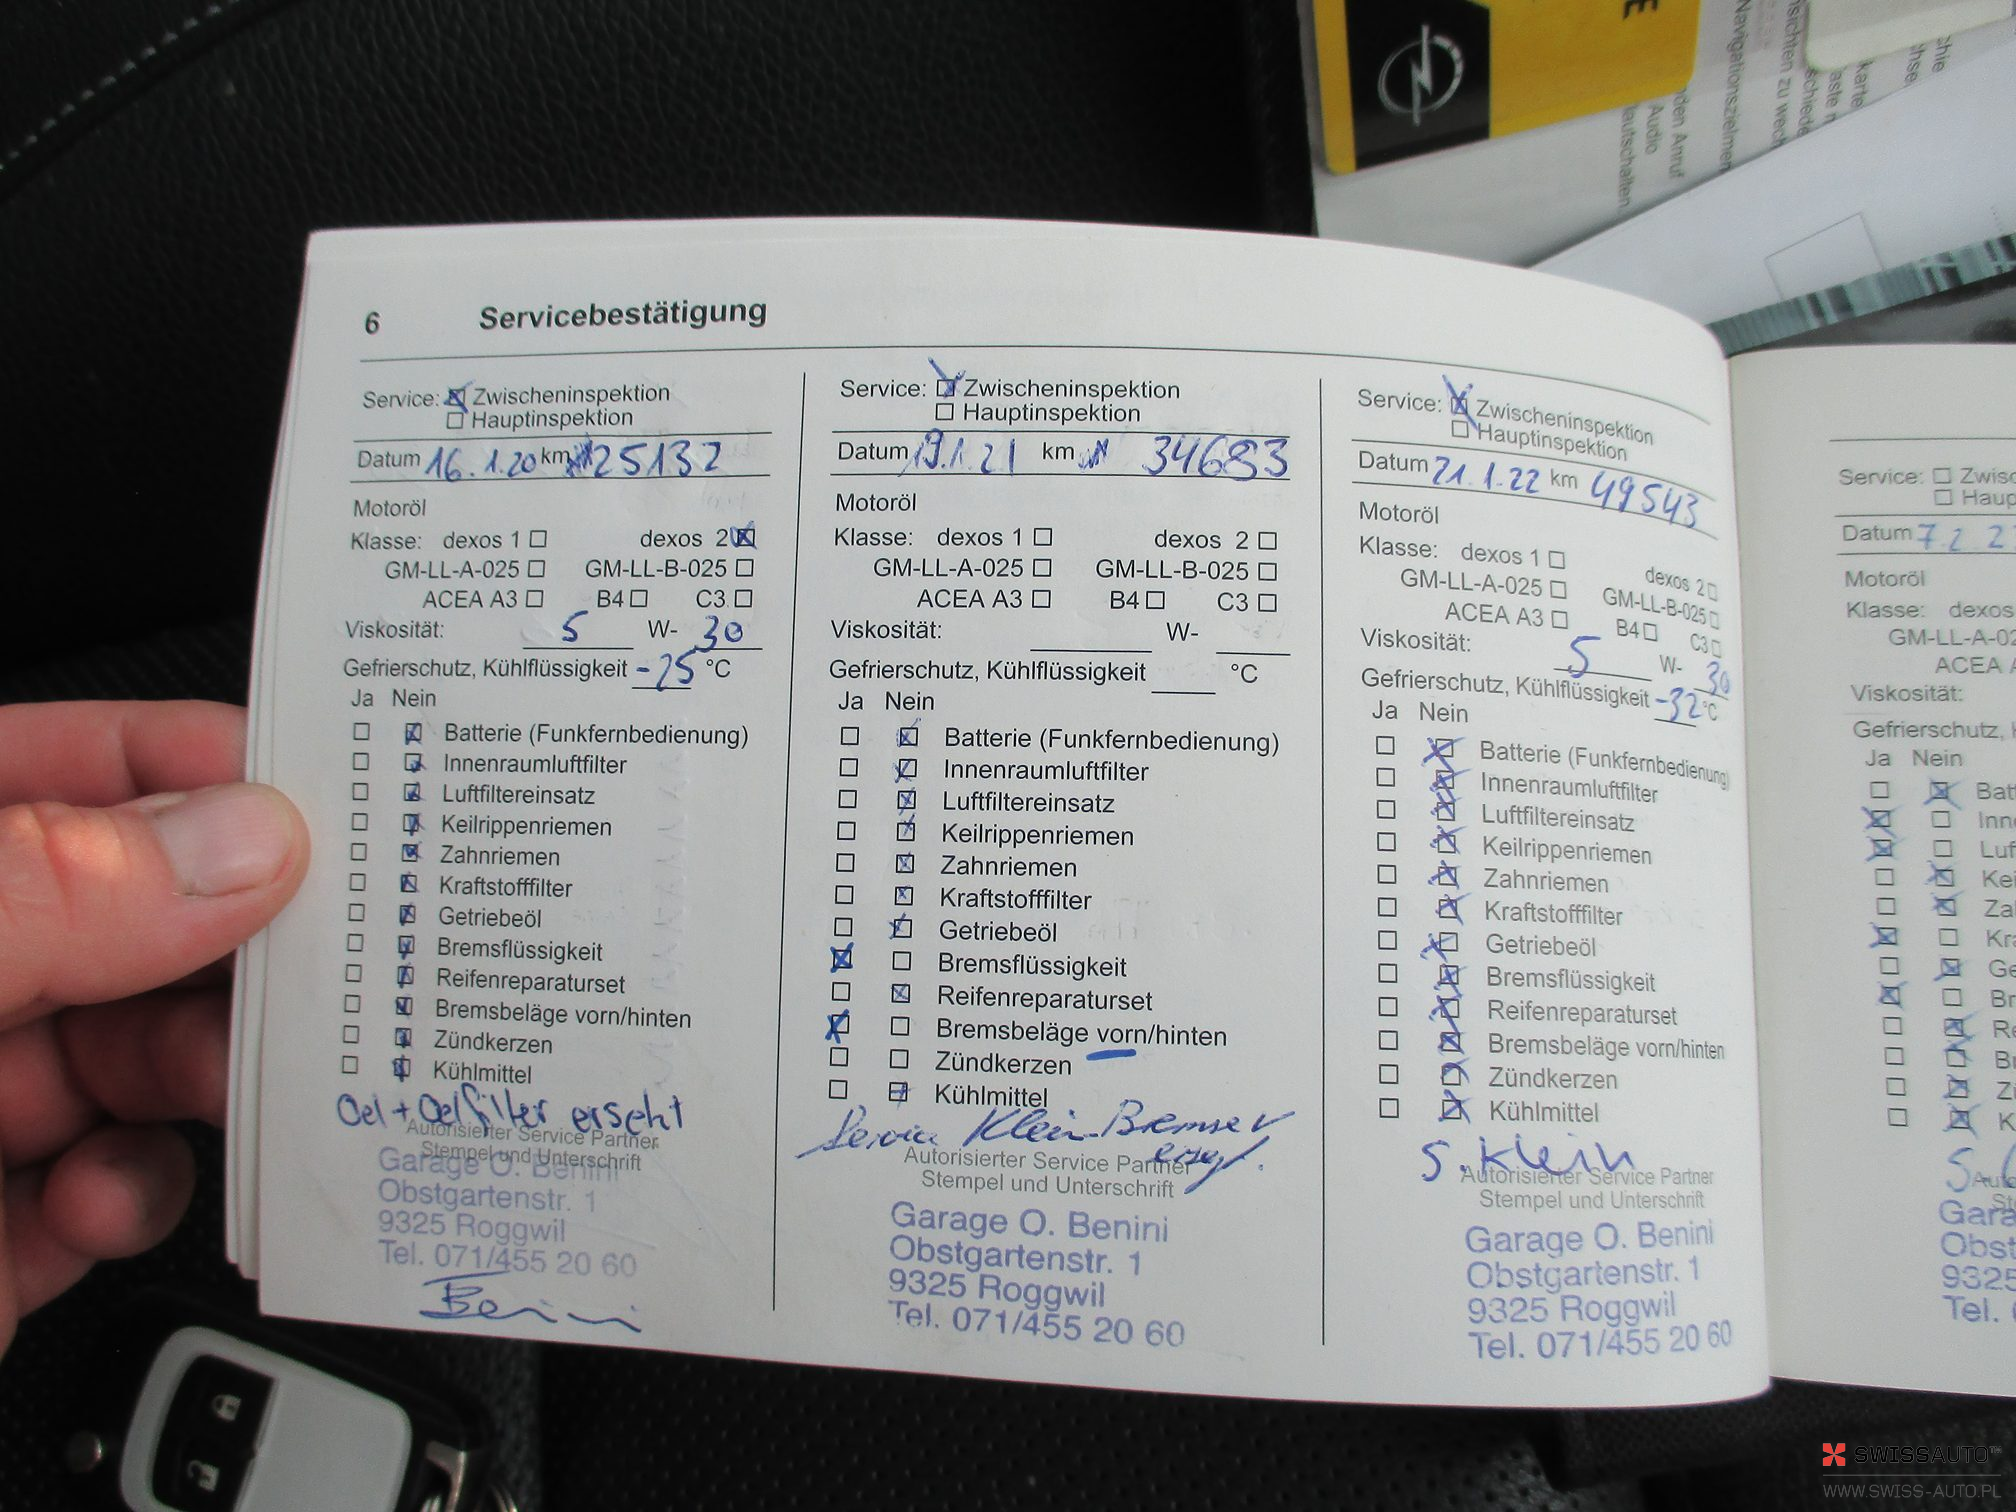 6 Servicebestätigung
Service: Zwischeninspektion
Hauptinspektion
Datum 16.1.20 km 25132
Motoröl
Klasse: dexos 1 dexos 2
GM-LL-A-025 GM-LL-B-025
ACEA A3 B4 C3
Viskosität: 5 W- 30
Gefrierschutz, Kühlflüssigkeit -25 °C
Ja Nein
Batterie (Funkfernbedienung)
Innenraumluftfilter
Luftfiltereinsatz
Keilrippenriemen
Zahnriemen
Kraftstofffilter
Getriebeöl
Bremsflüssigkeit
Reifenreparaturset
Bremsbeläge vorn/hinten
Zündkerzen
Kühlmittel
Oel + Oelfilter ersetzt
Autorisierter Service Partner
Stempel und Unterschrift
Garage O. Benini
Obstgartenstr. 1
9325 Roggwil
Tel. 071/455 20 60
Benini
Service: Zwischeninspektion
Hauptinspektion
Datum 19.1.21 km 34683
Motoröl
Klasse: dexos 1 dexos 2
GM-LL-A-025 GM-LL-B-025
ACEA A3 B4 C3
Viskosität: W-
Gefrierschutz, Kühlflüssigkeit °C
Ja Nein
Batterie (Funkfernbedienung)
Innenraumluftfilter
Luftfiltereinsatz
Keilrippenriemen
Zahnriemen
Kraftstofffilter
Getriebeöl
Bremsflüssigkeit
Reifenreparaturset
Bremsbeläge vorn/hinten
Zündkerzen
Kühlmittel
Service Klein-Bremse v
Autorisierter Service Partner
Stempel und Unterschrift
Garage O. Benini
Obstgartenstr. 1
9325 Roggwil
Tel. 071/455 20 60
Service: Zwischeninspektion
Hauptinspektion
Datum 21.1.22 km 49543
Motoröl
Klasse: dexos 1 dexos 2
GM-LL-A-025 GM-LL-B-025
ACEA A3 B4 C3
Viskosität: 5 W- 30
Gefrierschutz, Kühlflüssigkeit -32 °C
Ja Nein
Batterie (Funkfernbedienung)
Innenraumluftfilter
Luftfiltereinsatz
Keilrippenriemen
Zahnriemen
Kraftstofffilter
Getriebeöl
Bremsflüssigkeit
Reifenreparaturset
Bremsbeläge vorn/hinten
Zündkerzen
Kühlmittel
S. Klein
Autorisierter Service Partner
Stempel und Unterschrift
Garage O. Benini
Obstgartenstr. 1
9325 Roggwil
Tel. 071/455 20 60
Service: Zwisc
Haup
Datum 7.2.2
Motoröl
Klasse: dexos
GM-LL-A-02
ACEA A
Viskosität:
Gefrierschutz,
Ja Nein
Batt
Inne
Luf
Kei
Za
Kra
Ge
Br
Re
Br
Zü
K
Gara
Obst
9325
Tel.
nden Anruf
Audio
lautschalten
Navigationszielmen
nsichten zu wech
SWISSAUTO™
WWW.SWISS-AUTO.PL